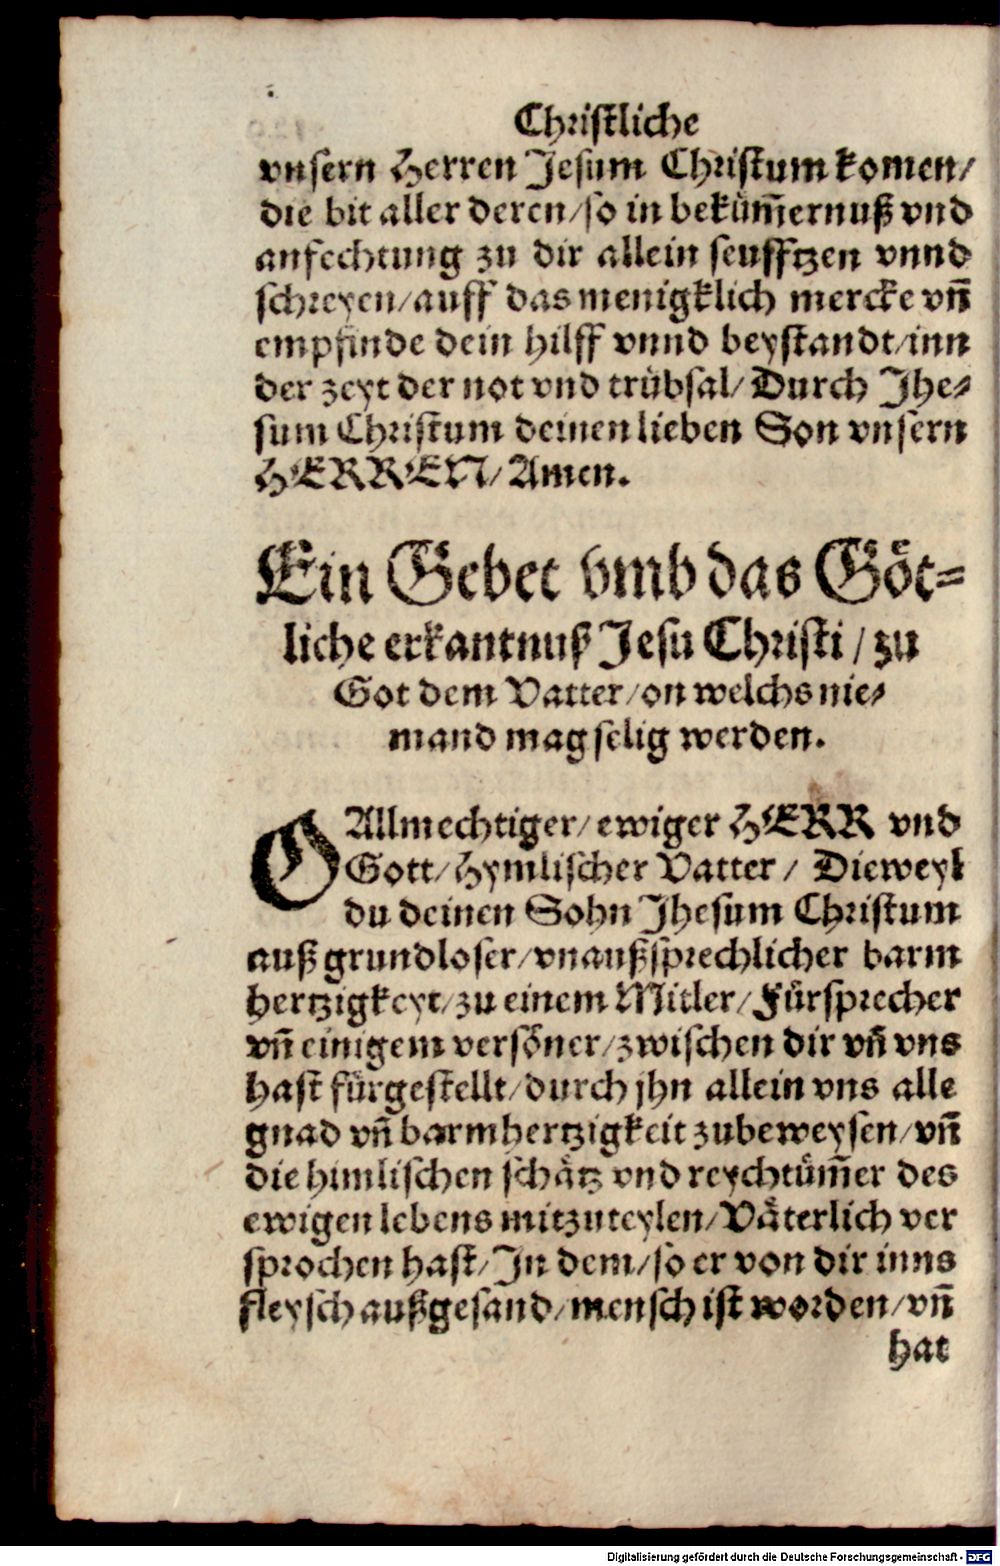 Christliche
vnsern Herren Jesum Christum komen/
die bit aller deren/so in bekūm̄ernuß vnd
anfechtung zu dir allein seufftzen vnnd
schreyen/auff das menigklich mercke vn̄
empfinde dein hilff vnnd beystandt/inn
der zeyt der not vnd trübsal/Durch Jhe⸗
sum Christum deinen lieben Son vnsern
HERREN/Amen.
Ein Gebet vmb das Göt⸗
liche erkantnuß Jesu Christi / zu
Got dem Vatter/on welchs nie⸗
mand mag selig werden.
O Allmechtiger/ewiger HERR vnd
Gott/Hymlischer Vatter / Dieweyl
du deinen Sohn Jhesum Christum
auß grundloser/vnaußsprechlicher barm
hertzigkeyt/zu einem Mitler/Fürsprecher
vn̄ einigem versöner/zwischen dir vn̄ vns
hast fürgestellt/durch jhn allein vns alle
gnad vn̄ barmhertzigkeit zubeweysen/vn̄
die himlischen schätz vnd reychtüm̄er des
ewigen lebens mitzuteylen/Väterlich ver
sprochen hast/In dem/so er von dir inns
fleysch außgesand/mensch ist worden/vn̄
hat
Digitalisierung gefördert durch die Deutsche Forschungsgemeinschaft - DFG